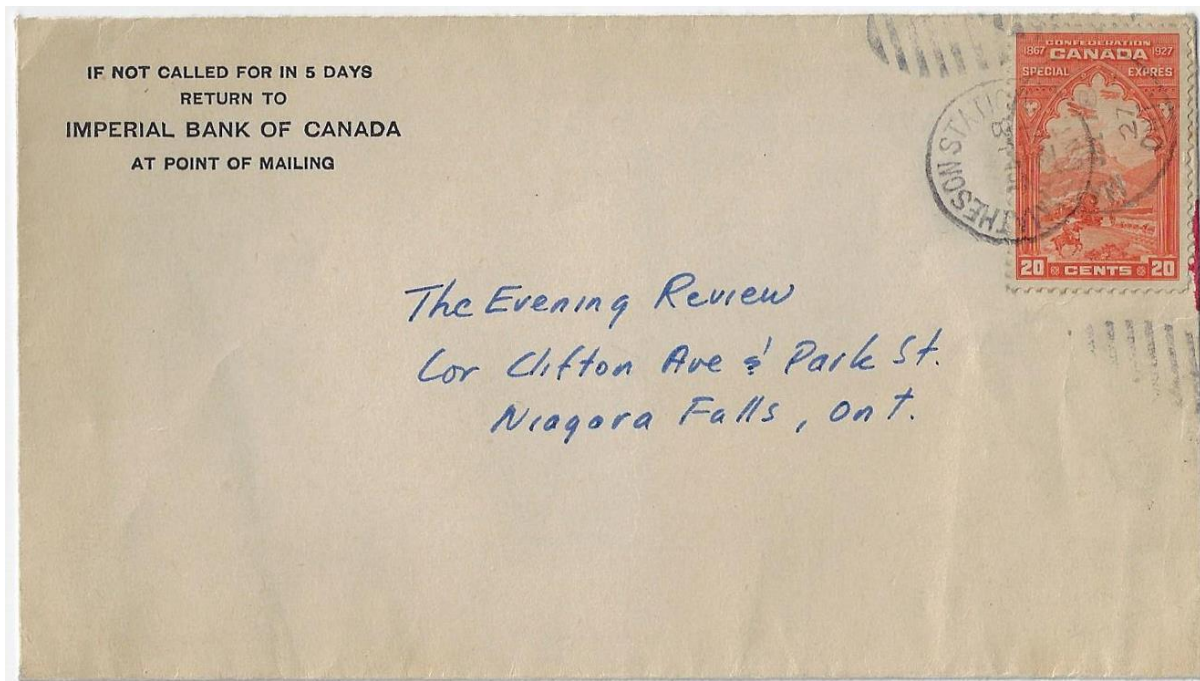 IF NOT CALLED FOR IN 5 DAYS
RETURN TO
IMPERIAL BANK OF CANADA
AT POINT OF MAILING
CONFEDERATION
1867 CANADA 1927
SPECIAL EXPRES
20 CENTS 20
MATHESON STATION
27
The Evening Review
Cor Clifton Ave & Park St.
Niagara Falls, Ont.